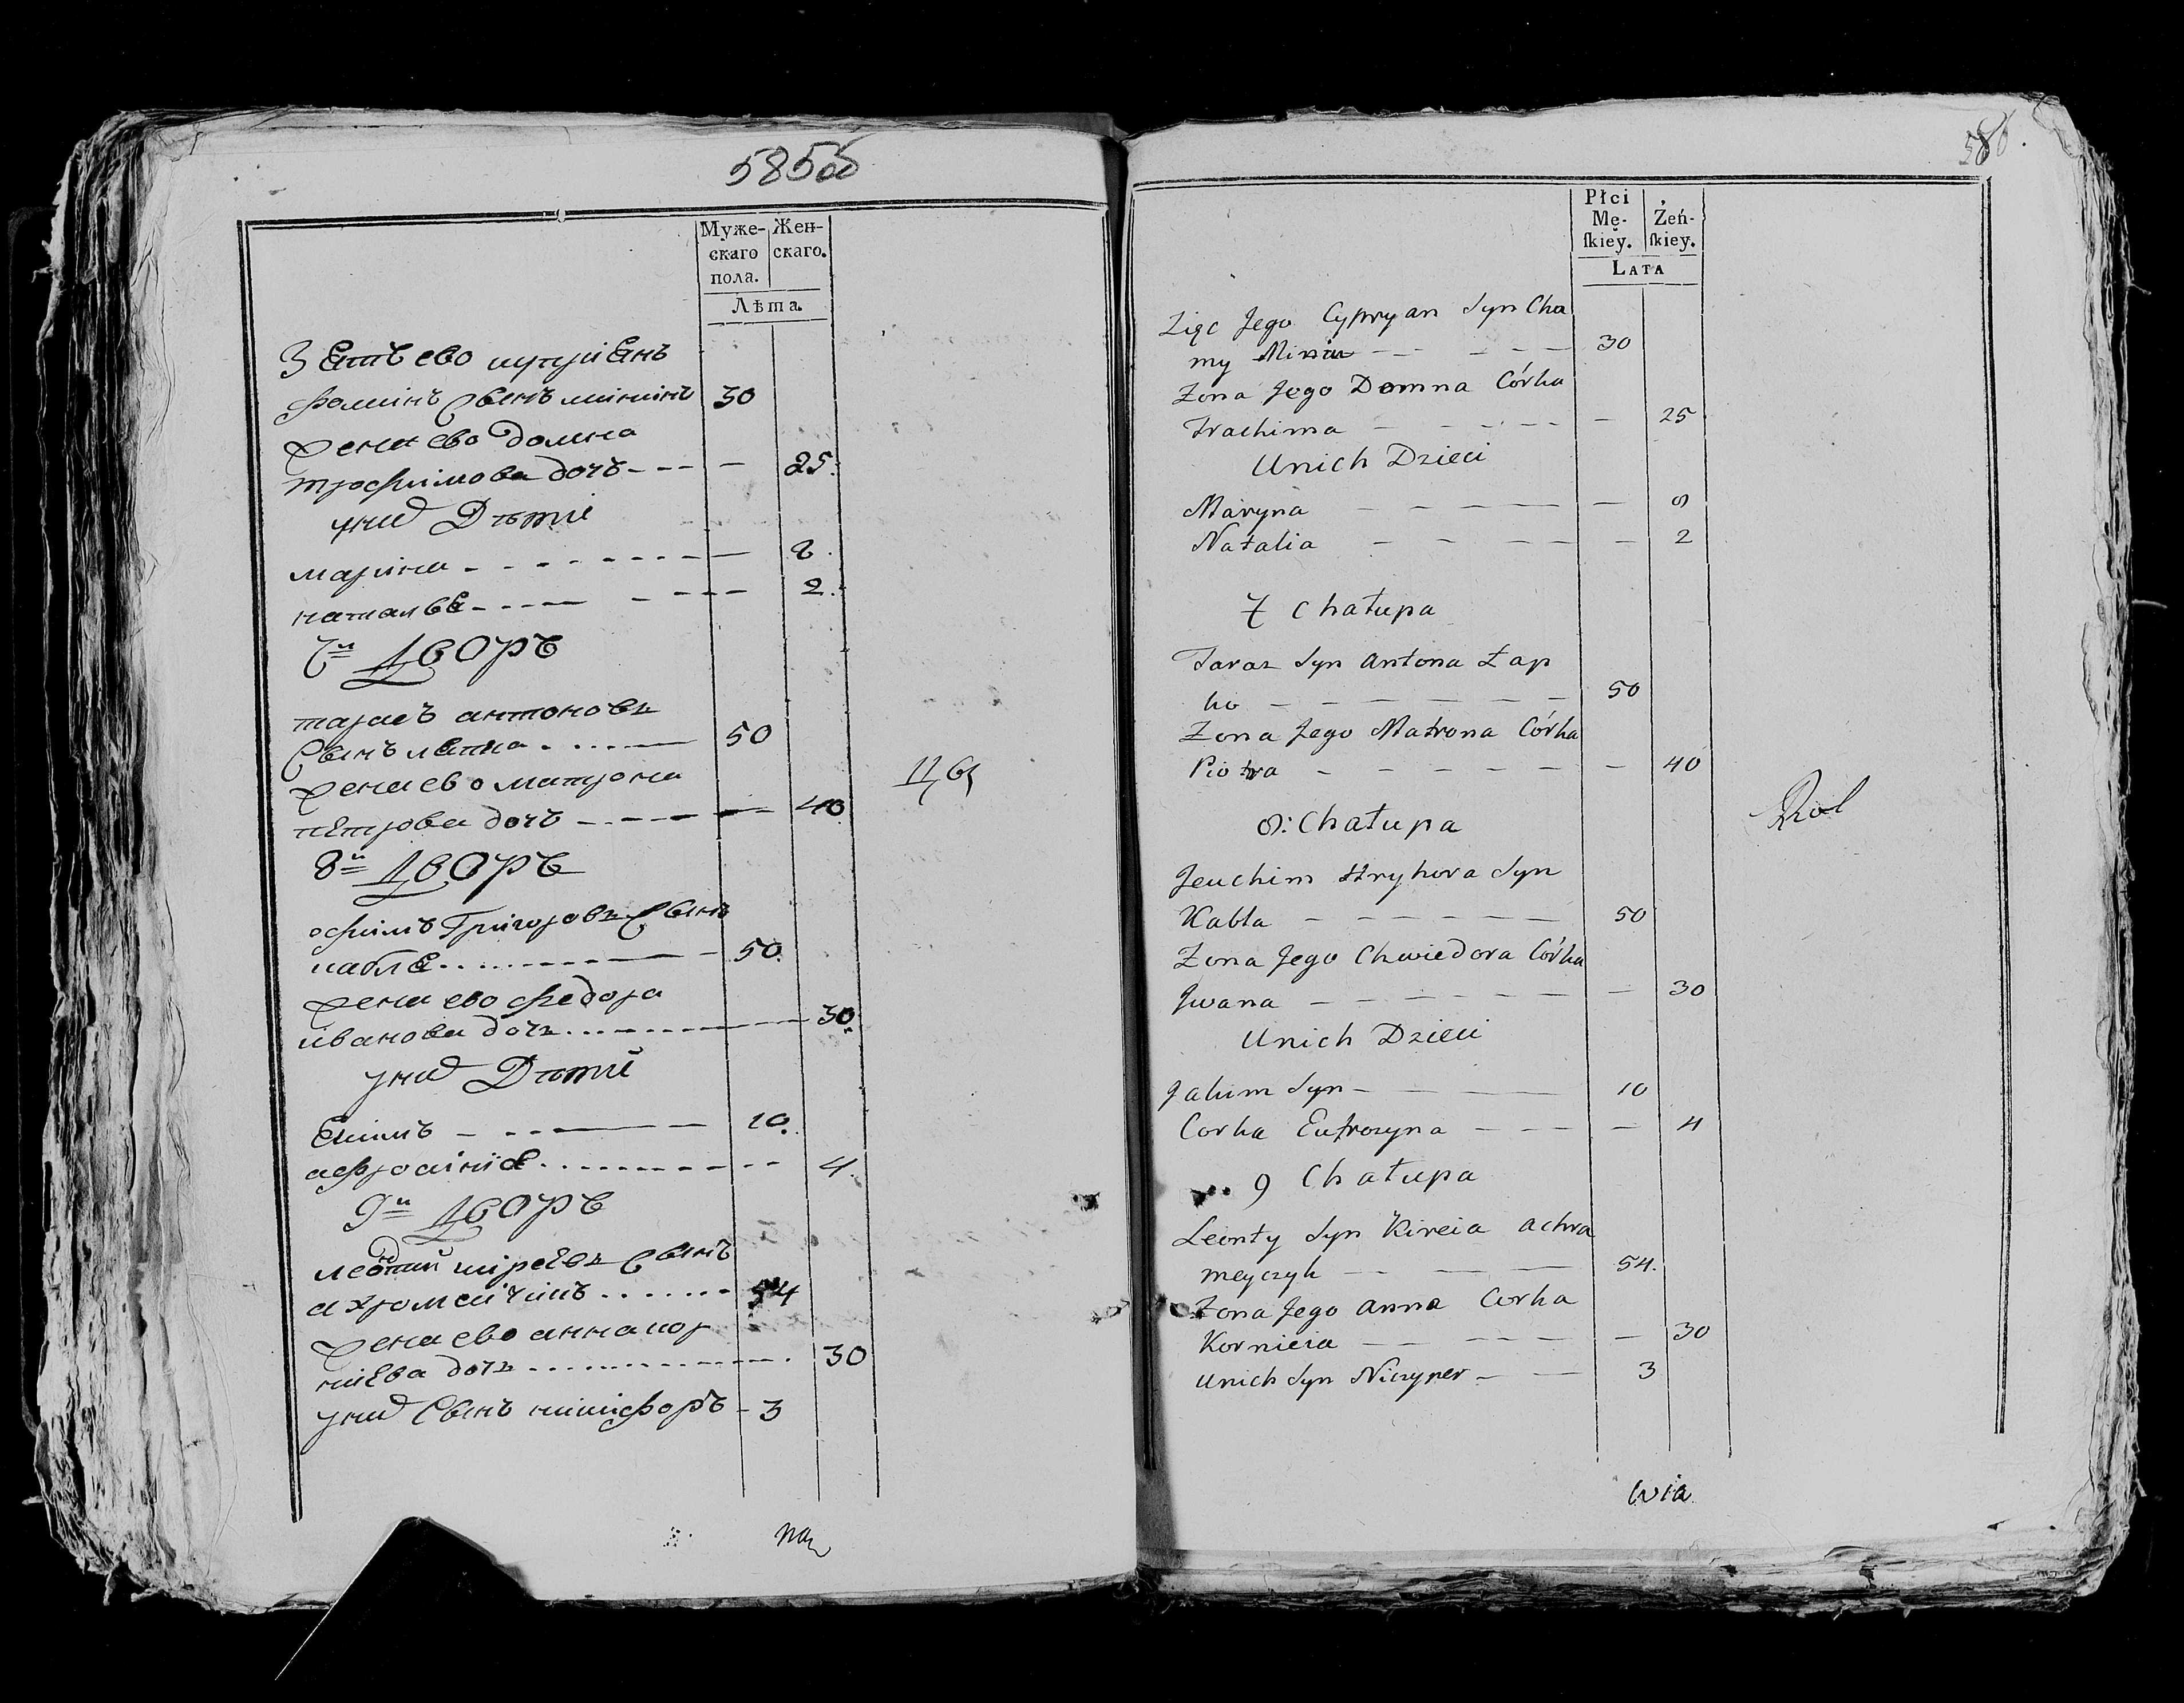 585об
Муже-
скаго
пола.
Жен-
скаго.
Лѣта.
Зять ево циприянъ
фоминъ сынъ мининъ 30
жена ево домна
трофимова дочь - - - — 25.
у них Дѣти
марина - - - - - - - — 8.
наталья - - - - — - - - — 2.
7й дворъ
тарасъ антоновъ
сынъ лапка . - . . . — 50
жена ево матрона
петрова дочь - - - - - — 40
8й дворъ
ефимъ Григоровъ сынъ
кабля . . . - - - - - — 50.
жена ево федора
иванова дочь . . . - - - — 30.
у них Дѣти
Екимъ - - - — 10.
афросинія . . . - - - - - 4.
9й дворъ
леонтий киреевъ сынъ
ахромейчикъ . . . . . . . 54
жена ево анна кор
ниева дочь . . . . . - - - - . 30
у них сынъ никифоръ - 3
586.
Płci
Mę-
skiey.
Żeń-
skiey.
LATA
Zięc Jego Cypryan Syn Cho
my Minin — - - - - 30
Zona Jego Domna Córka
Trachima - - - - - — 25
Unich Dzieci
Maryna - - - — — — 8
Natalia - - - — — — 2
7 Chałupa
Taras Syn Antona Łap
ko - — — — — — 50
Zona Jego Matrona Córka
Piotra - - - - - — 40
8: Chałupa
Jeuchim Hryhora Syn
Kabla - - - - - — 50
Zona Jego Chwiedora Córka
Jwana - - - - - — — 30
Unich Dzieci
Jakim Syn - — — 10
Corka Eufrozyna - - - — 4
9 Chałupa
Leonty Syn Kireia Achra
meyczyk - - — — 54.
Zona Jego Anna Corka
Kornieia — - - - — 30
Unich Syn Niczyper - — 3
wia